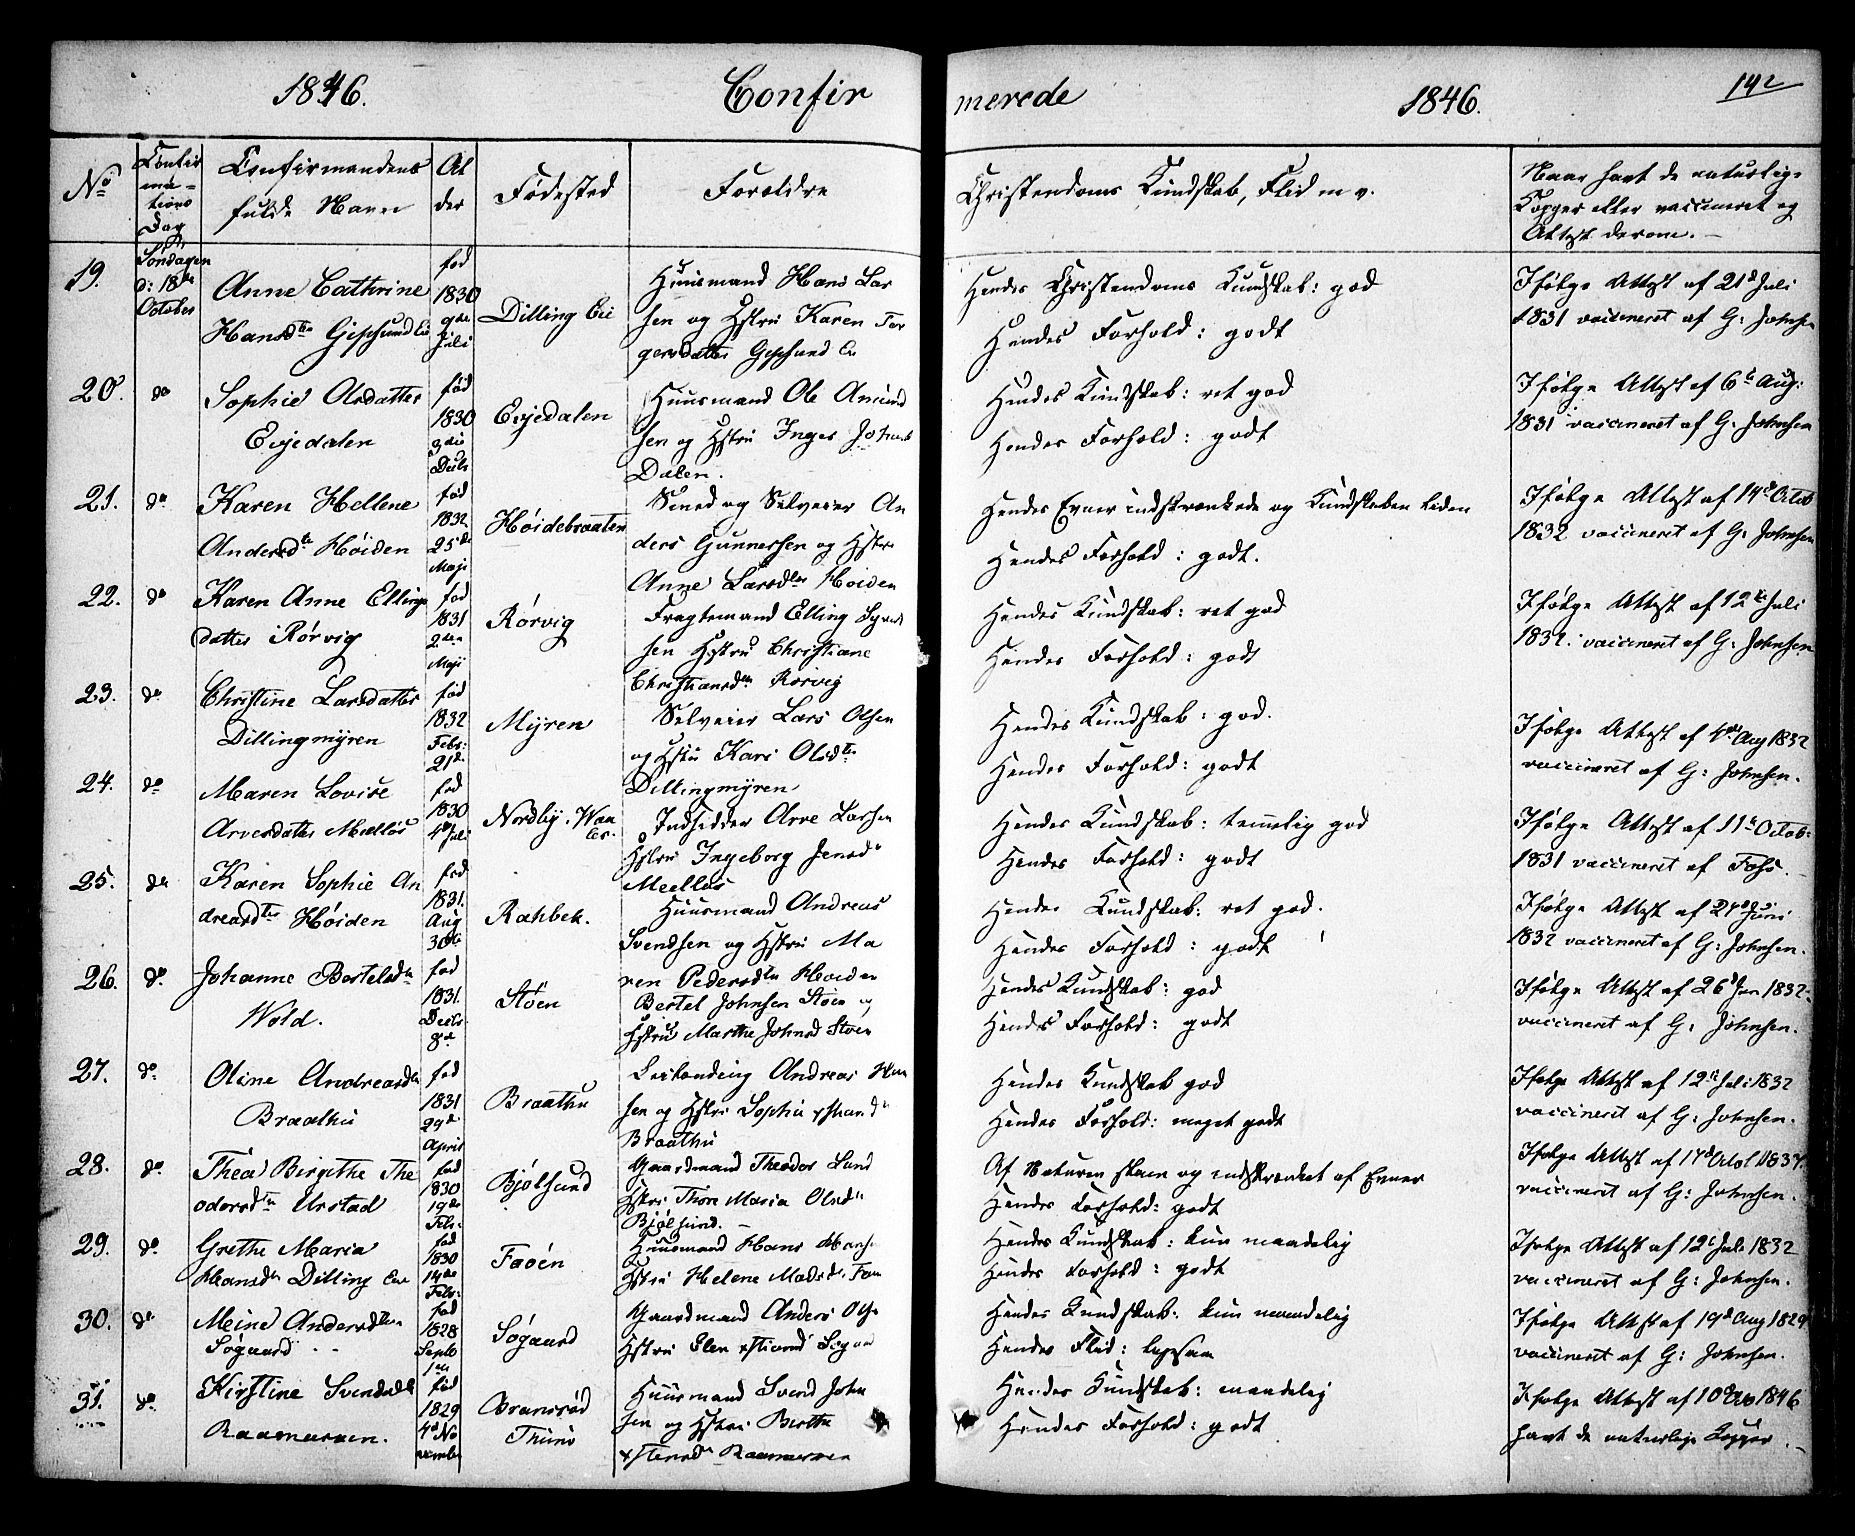 1846. Confir
merede 1846. 142
No
Confir
ma-
tions
Dag
Confirmandens
fulde Navn
Al
der
Fødested
Forældre
Christendoms Kundskab, Flid m v.
Naar havt de naturlige
Kopper eller vaccineret og
Attest derom. —
19.
Søndagen
d: 18de
October
Anne Cathrine
Hansdtr
fød
1830
9de
Juli
Dilling Eie
Huusmand Hans Lar
sen og Hstru Karen Tor
gersdatter
Hendes Christendoms Kundskab: god
Hendes Forhold: godt
Ifølge Attest af 21d Juli
1831 vaccineret af G: Johnsen
20. do
Sophie Olsdatter
Evjedalen
fød
1830
3die
Decbr
Evjedalen
Huusmand Ole Amund
sen og Hstru Inger Johns
Dalen.
Hendes Kundskab: ret god
Hendes Forhold: godt
Ifølge Attest af 6te Aug:
1831 vaccineret af G: Johnsen
21. do
Karen Hellene
Andersdtr Høiden
fød
1832
25de
Maji
Høidebraaten
Smed og Selveier An
ders Gunnersen og Hstru
Anne Larsdtr Høiden
Hendes Evner indskrænkede og Kundskaben liden
Hendes Forhold: godt.
Ifølge Attest af 14de Octob
1832 vaccineret af G: Johnsen
22. do
Karen Anne Ellings
datter Rørvig
fød
1831
2den
Maji
Rørvig
Fragtemand Elling
sen Hstru Christiane
Christiansdtr Rørvig
Hendes Kundskab: ret god
Hendes Forhold: godt
Ifølge Attest af 12te Juli
1832. vaccineret af G: Johnsen
23. do
Christine Larsdatter
Dillingmÿren
fød
1832
Febr:
21de
Mÿren
Selveier Lars Olsen
og Hstru Kari Olsdtr
Dillingmÿren
Hendes Kundskab: god.
Hendes Forhold: godt
Ifølge Attest af 4de Aug 1832
vaccineret af G: Johnsen.
24. do
Maren Lovise
Arvesdatter Melløs
fød
1830
4de Juli
Nordby i Waa
ler.
Indsidder Arve Larsen
Hstru Ingeborg Jensd
Melløs
Hendes Kundskab: temelig god
Hendes Forhold: godt
Ifølge Attest af 11te Octob:
1831 vaccineret af Foss.
25. do
Karen Sophie An
dreasdtr Høiden
fød
1831.
Aug
30te
Rahbek.
Huusmand Andreas
Svendsen og Hstru Ma
ren Pedersdtr Høiden
Hendes Kundskab: ret god.
Hendes Forhold: godt
Ifølge Attest af 24de Juni
1832 vaccineret af G: Johnsen.
26. do
Johanne Bertelsdtr
Wold.
fød
1831.
Decbr
8de
Støen
Bertel Johnsen Støen og
Hstru Marthe Johnsd Støen
Hendes Kundskab: god
Hendes Forhold: godt
Ifølge Attest af 26d Jan 1832.
vaccineret af G: Johnsen.
27. do
Oline Andreasdtr
Braathu
fød
1831
29de
April
Braathu
Andreas Han
sen og Hstru Sophie
Braathu
Hendes Kundskab god
Hendes Forhold: meget godt
Ifølge Attest af 12te Juli 1832
vaccineret af G: Johnsen.
28. do
Thea Birgithe The
odorsdtr Urstad
fød
1830
19de
Febr:
Bjølsund
Gaardmand Theodor Lund
Hstru Thore Maria Olsdtr
Bjølsund.
Af Naturen sløv og indskrænket af Evner
Hendes Forhold: godt
Ifølge Attest af
vaccineret af G: Johnsen.
29. do
Grethe Maria
Hansdtr Dilling Eie
fød
1830
14de
Febr:
Faøen
Huusmand Hans Hansen
Hstru Helene Madsdtr
Hendes Kundskab: kun maadelig
Hendes Forhold: godt
Ifølge Attest af 12te Juli 1832
vaccineret af G: Johnsen.
30. do
Meine Andersdtr
Søgaard
fød
1828
Septb
1ste
Søgaard
Gaardmand Anders Olse
Hstru Elen
Hendes Kundskab: kun maadelig
Hendes Flid:
Ifølge Attest af 19d Aug 1829
vaccineret af G: Johnsen.
31. do
Kirstine Svendsdtr
Raamersen.
fød
1829
4de No
vember
Bransrød
Thunø
Huusmand Svend John
sen og Hstru Berthe
Raamersen
Hendes Kundskab: maadelig
Hendes Forhold: godt
Ifølge Attest af 10de 1846
havt de naturlige Kopper. —